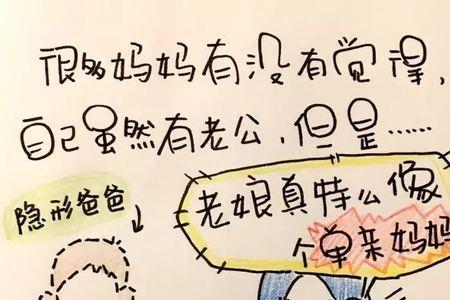 很多妈妈有没有觉得，
自己虽然有老公，但是……
隐形爸爸
老娘真特么像
个单亲妈妈